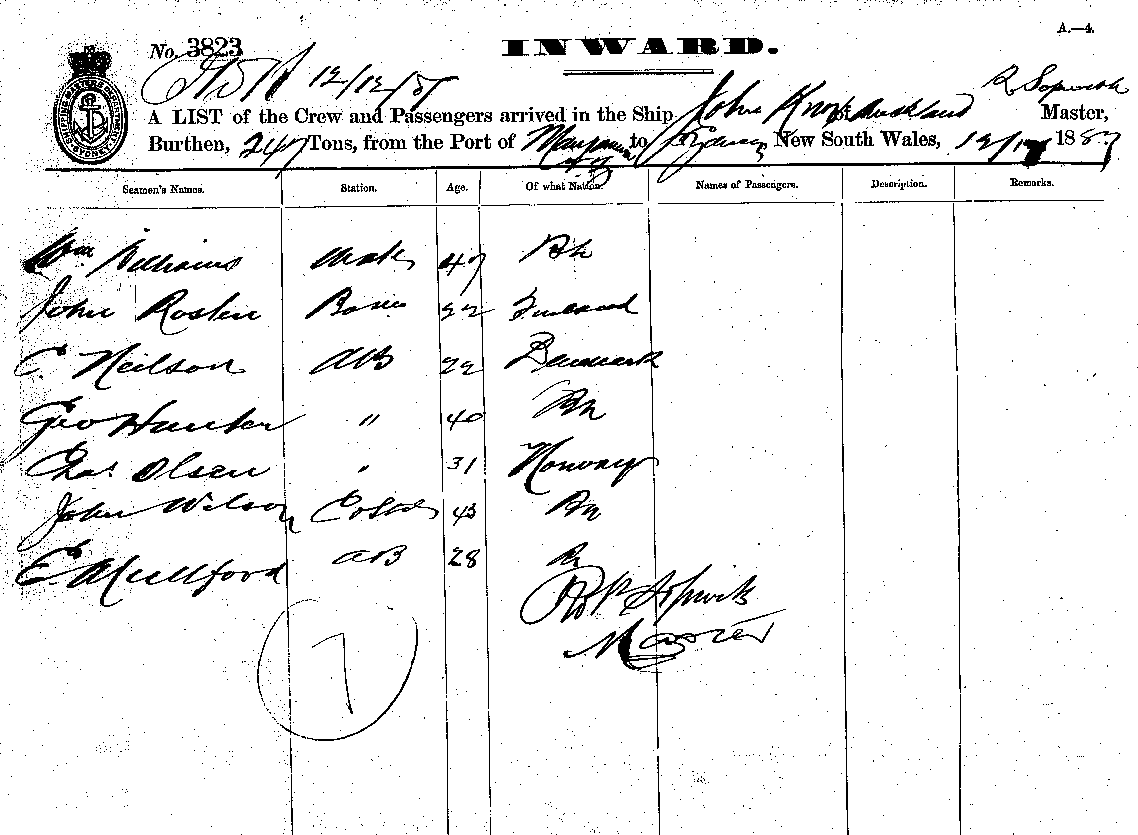 A.—4.
No. 3823
INWARD.
12/12/87
R Sopwith
A LIST of the Crew and Passengers arrived in the Ship John Knox Auckland Master,
Burthen, 247 Tons, from the Port of to Sydney New South Wales, 12/12 1887
Seamen's Names. Station. Age. Of what Nation. Names of Passengers. Description. Remarks.
Wm Williams Mate 47 Bh
John Roslin Bosun 22 Finland
C Neilson AB 22 Denmark
Geo Hunter " 40 Bh
Chas. Olsen " 31 Norway
John Wilson 43 Bh
E Mullford AB 28 B
Robt Sopwith
Master
7